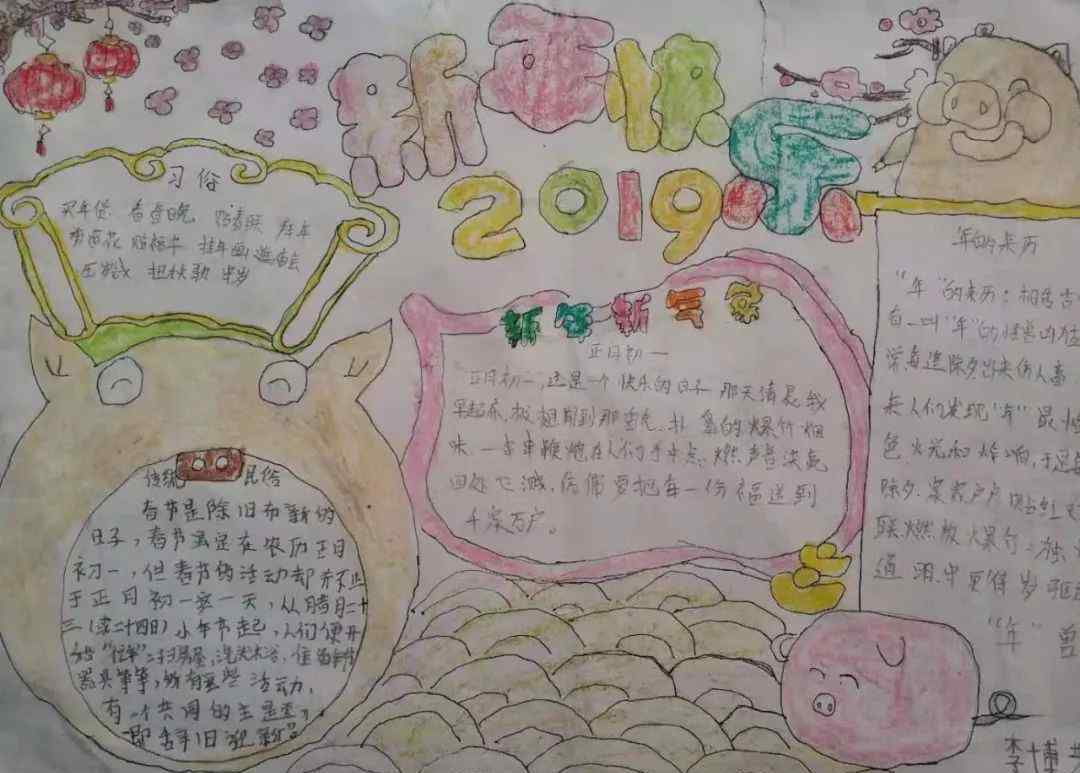 新年快乐
2019
习俗
买年货 看春晚 贴春联 拜年
剪窗花 贴福字 挂年画 逛庙会
压岁钱 扭秧歌 守岁
传统民俗
春节是除旧布新的
日子，春节虽是在农历正月
初一，但春节的活动却并不止
于正月初一这一天，从腊月二十
三（或二十四日）小年节起，人们便开
始“忙年”：扫房屋，洗头沐浴，准备年节
器具等等，所有这些活动，
有一个共同的主题，
即“辞旧迎新”。
新年新气象
正月初一
正月初一，这是一个快乐的日子 那天清晨我
早起床，
味，一串串鞭炮在人们手中点燃声音
千家万户。
年的来历
“年”的来历：相传古
有一叫“年”的怪兽凶猛
常每逢除夕出来伤人畜，
来人们发现“年”最怕
色火光和炸响，于是每
除夕，家家户户贴红
联燃放爆竹；
通
“年”兽
李博